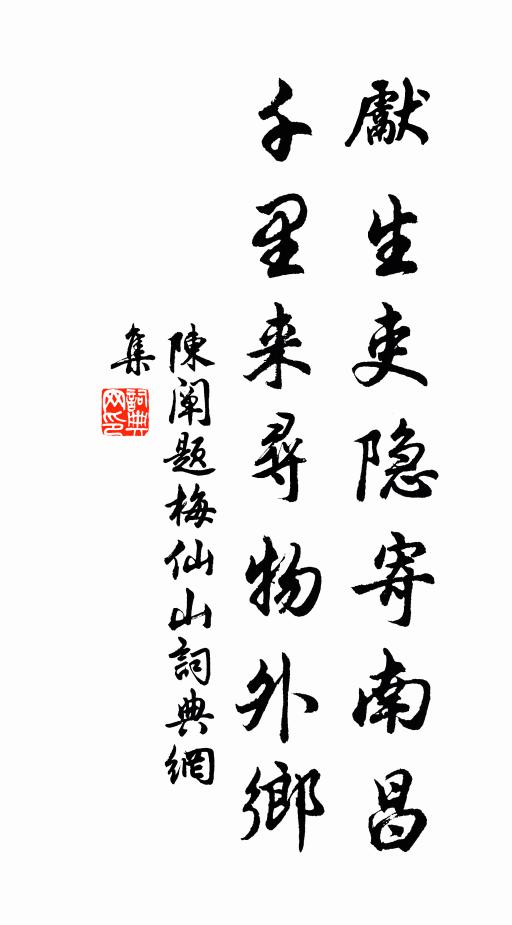 獻生吏隐寄南昌
千里来尋物外鄉
陳闡題梅仙山詞典網
集
詞典网印